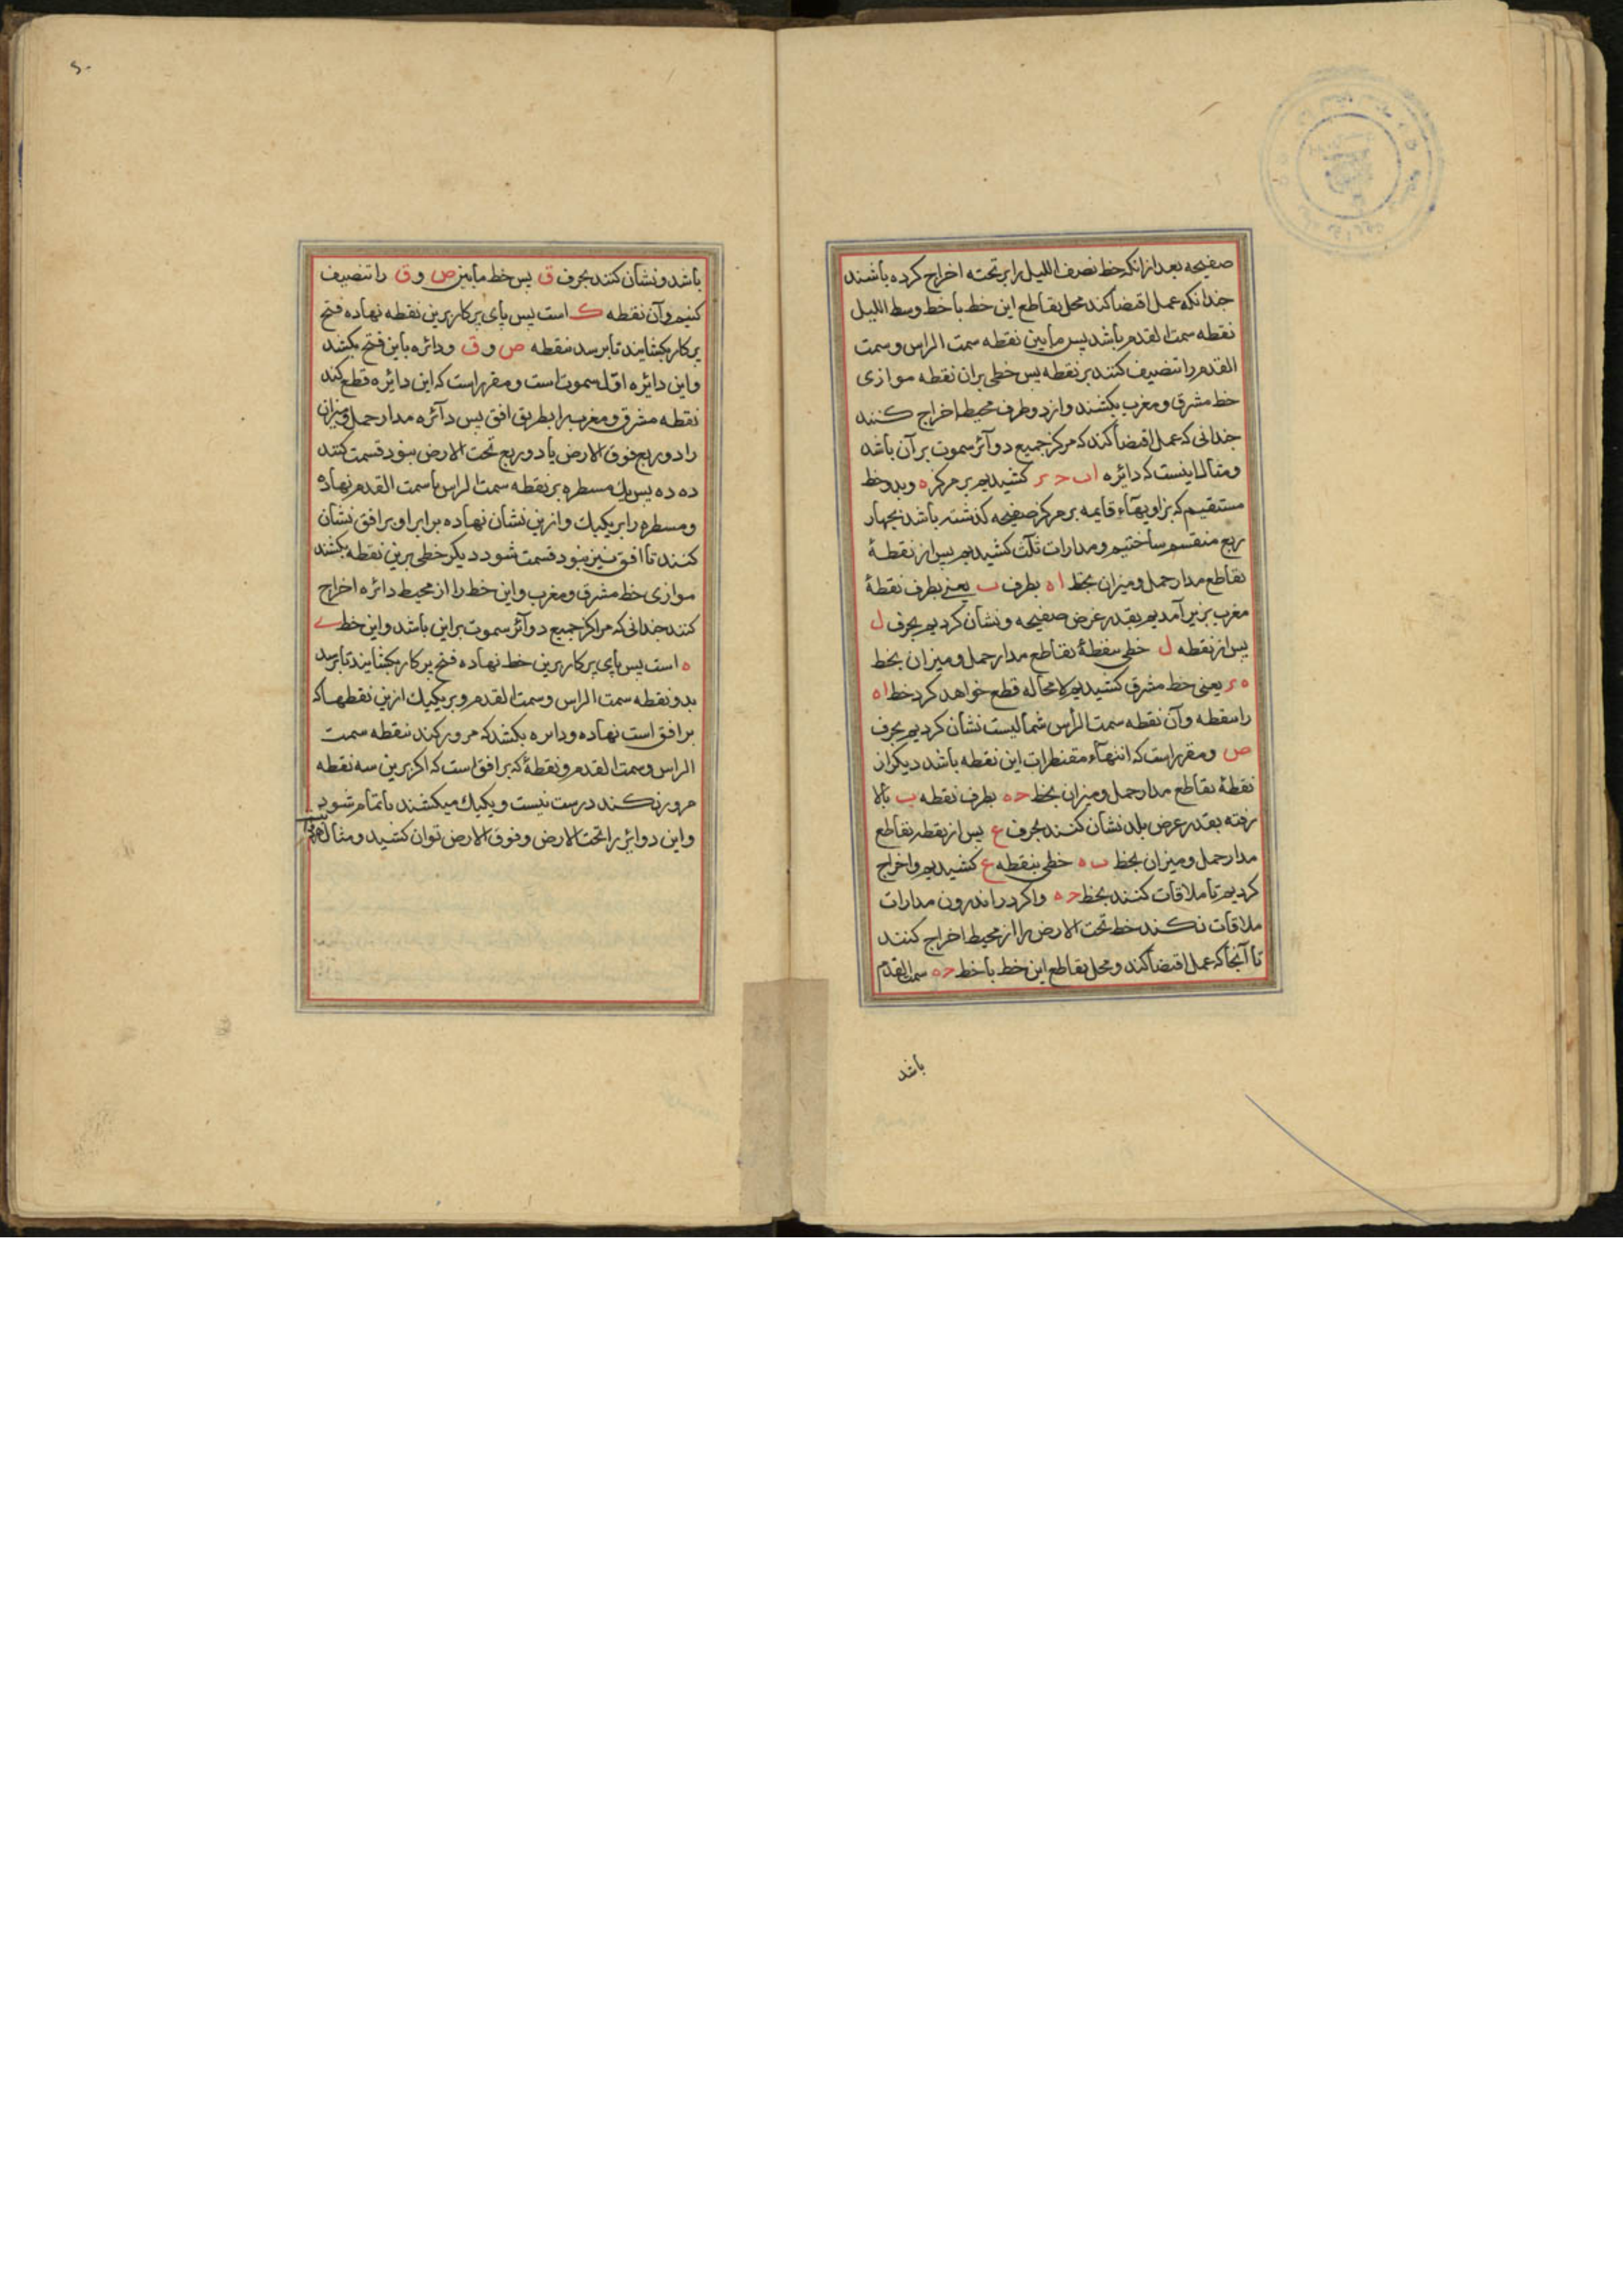 صفیحه بعد ازانکه خط نصف اللیل را بر تخته اخراج کرده باشند
چندانکه عمل اقتضا کند محل تقاطع این خط با خط وسط اللیل
نقطه سمت القدم باشد پس مابین نقطه سمت الراس و سمت
القدم را تنصیف کنند بر نقطه پس خطی بران نقطه موازی
خط مشرق و مغرب بکشند و از دو طرف محیط اخراج کنند
چندانی که عمل اقتضا کند که مرکز جمیع دوآئر سموت بر آن باشد
و مثالا اینست که دائره ا ب ح ر کشیدیم بر مرکز ه و بدو خط
مستقیم که بزاویهآء قایمه بر مرکز صفیحه کذشته باشد بچهار
ربع منقسم ساختیم و مدارات ثلث کشیدیم پس از نقطهٔ
تقاطع مدار حمل و میزان بخط ا ه بطرف ب یعنی بطرف نقطهٔ
مغرب بزیر آمدیم بقدر عرض صفیحه و نشان کردیم بحرف ل
پس از نقطه ل خطی بنقطهٔ تقاطع مدار حمل و میزان بخط
ه ر یعنی خط مشرق کشیدیم لا محاله قطع خواهد کرد خط ا ه
را بنقطه و آن نقطه سمت الرأس شمالیست نشان کردیم بحرف
ص و مقرر است که انتهآء مقنطرات این نقطه باشد دیکر از
نقطهٔ تقاطع مدار حمل و میزان بخط ح ه بطرف نقطه ب بالا
رفته بقدر عرض بلد نشان کنند بحرف ع پس از نقطه تقاطع
مدار حمل و میزان بخط ب ه خطی بنقطه ع کشیدیم و اخراج
کردیم تا ملاقات کنند بخط ح ه و اکر در اندرون مدارات
ملاقات نکند خط تحت الارض را از محیط اخراج کنند
تا آنجا که عمل اقتضا کند و محل تقاطع این خط با خط ح ه سمت القدم
باشد
باشد و نشان کنند بحرف ق پس خط مابین ص و ق را تنصیف
کنیم و آن نقطه ک است پس پای پرکار برین نقطه نهاده فتح
پرکار بکشایند تا برسد بنقطه ص و ق و دائره باین فتح بکشند
و این دایره اول سموت است و مقرر است که این دایره قطع کند
نقطه مشرق و مغرب را بطریق افق پس دآئره مدار حمل و میزان
را دو ربع فوق الارض یا دو ربع تحت الارض بنود قسمت کنند
ده ده پس یک مسطره بر نقطه سمت الراس یا سمت القدم نهاده
و مسطره را بر یکیک و ازین نشان نهاده برابر او بر افق نشان
کنند تا افق نیز بنود قسمت شود دیکر خطی برین نقطه بکشند
موازی خط مشرق و مغرب و این خط را از محیط دائره اخراج
کنند چندانی که مراکز جمیع دوآئر سموت بر این باشد و این خط ے
ه است پس پای پرکار برین خط نهاده فتح پرکار بکشایند تا برسد
بدو نقطه سمت الراس و سمت القدم و بر یکیک ازین نقطها که
بر افق است نهاده و دایره بکشند که مرور کند بنقطه سمت
الراس و سمت القدم و نقطهٔ که بر افق است که اکر برین سه نقطه
مرور نکند درست نیست و یکیک میکشند تا تمام شود
و این دوایر را تحت الارض و فوق الارض توان کشید و مثال